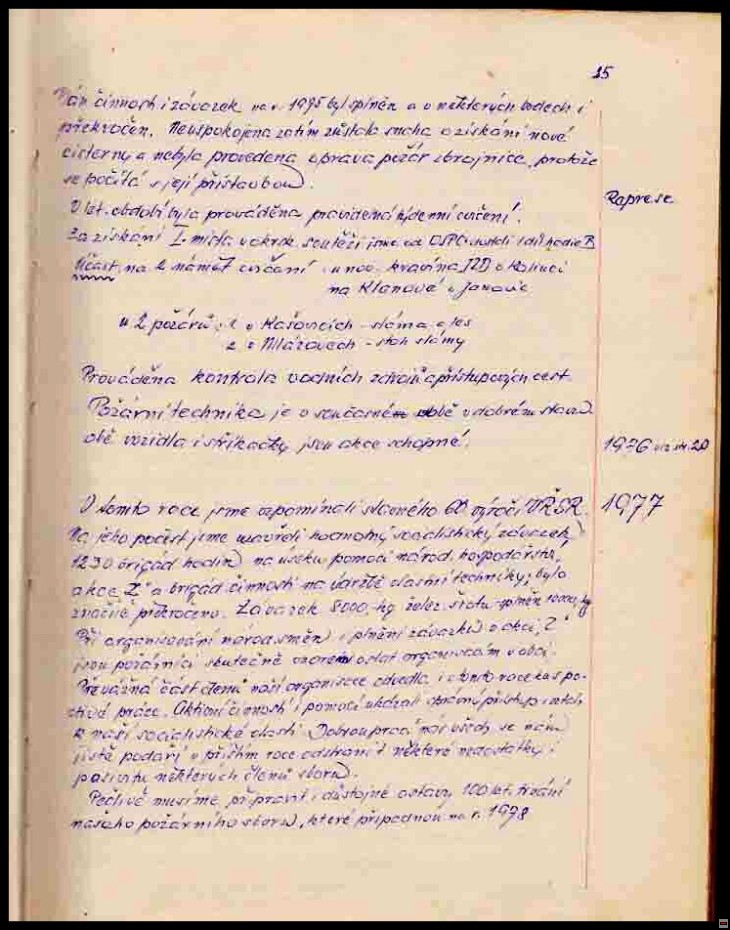 15
Plán činnosti i závazek na r. 1975 byl splněn a v některých bodech i
překročen. Neuspokojena zatím zůstala snaha o získání nové
cisterny a nebyla provedena oprava požár. zbrojnice, protože
se počítá s její přístavbou.
V let. období byla prováděna pravidelná týdenní cvičení.
Za získání I. místa v okrsk. soutěži jsme od OSPO dostali
Účast na 2 námět. cvičení: u nov. kravína JZD v
na Klenové v Janovic
u 2 požárů: 1. v Kašovicích - sláma a les
2. v Mlázovech - stoh slámy
Prováděna kontrola vodních zdrojů a přístupových cest.
Požární technika je v současné době v dobrém stavu
obě vozidla i stříkačky jsou akce schopné.
1976 viz str. 20
V tomto roce jsme vzpomínali slavného 60 výročí VŘSR. 1977
Na jeho počest jsme uzavřeli hodnotný socialistický závazek
1230 brigád hodin na úseku pomoci národ. hospodářství,
akce "Z" a brigád. činnosti na údržbě vlastní techniky; bylo
značně překročeno. Závazek 8000 kg želez. šrotu splněn 10000 kg
Při organisování národ. směn i plnění závazků v akci "Z"
jsou požárníci skutečně vzorem ostat. organisacím v obci.
Převážná část členů naší organisace odvedla i v tomto roce kus po-
ctivé práce. Aktivní činností i pomocí ukázali správný přístup i vztah
k naší socialistické vlasti. Dobrou prací nás všech se nám
jistě podaří v příštím roce odstranit některé nedostatky i
pasivitu některých členů sboru.
Pečlivě musíme připravit i důstojné oslavy 100 let. trvání
našeho požárního sboru, které připadnou na r. 1978